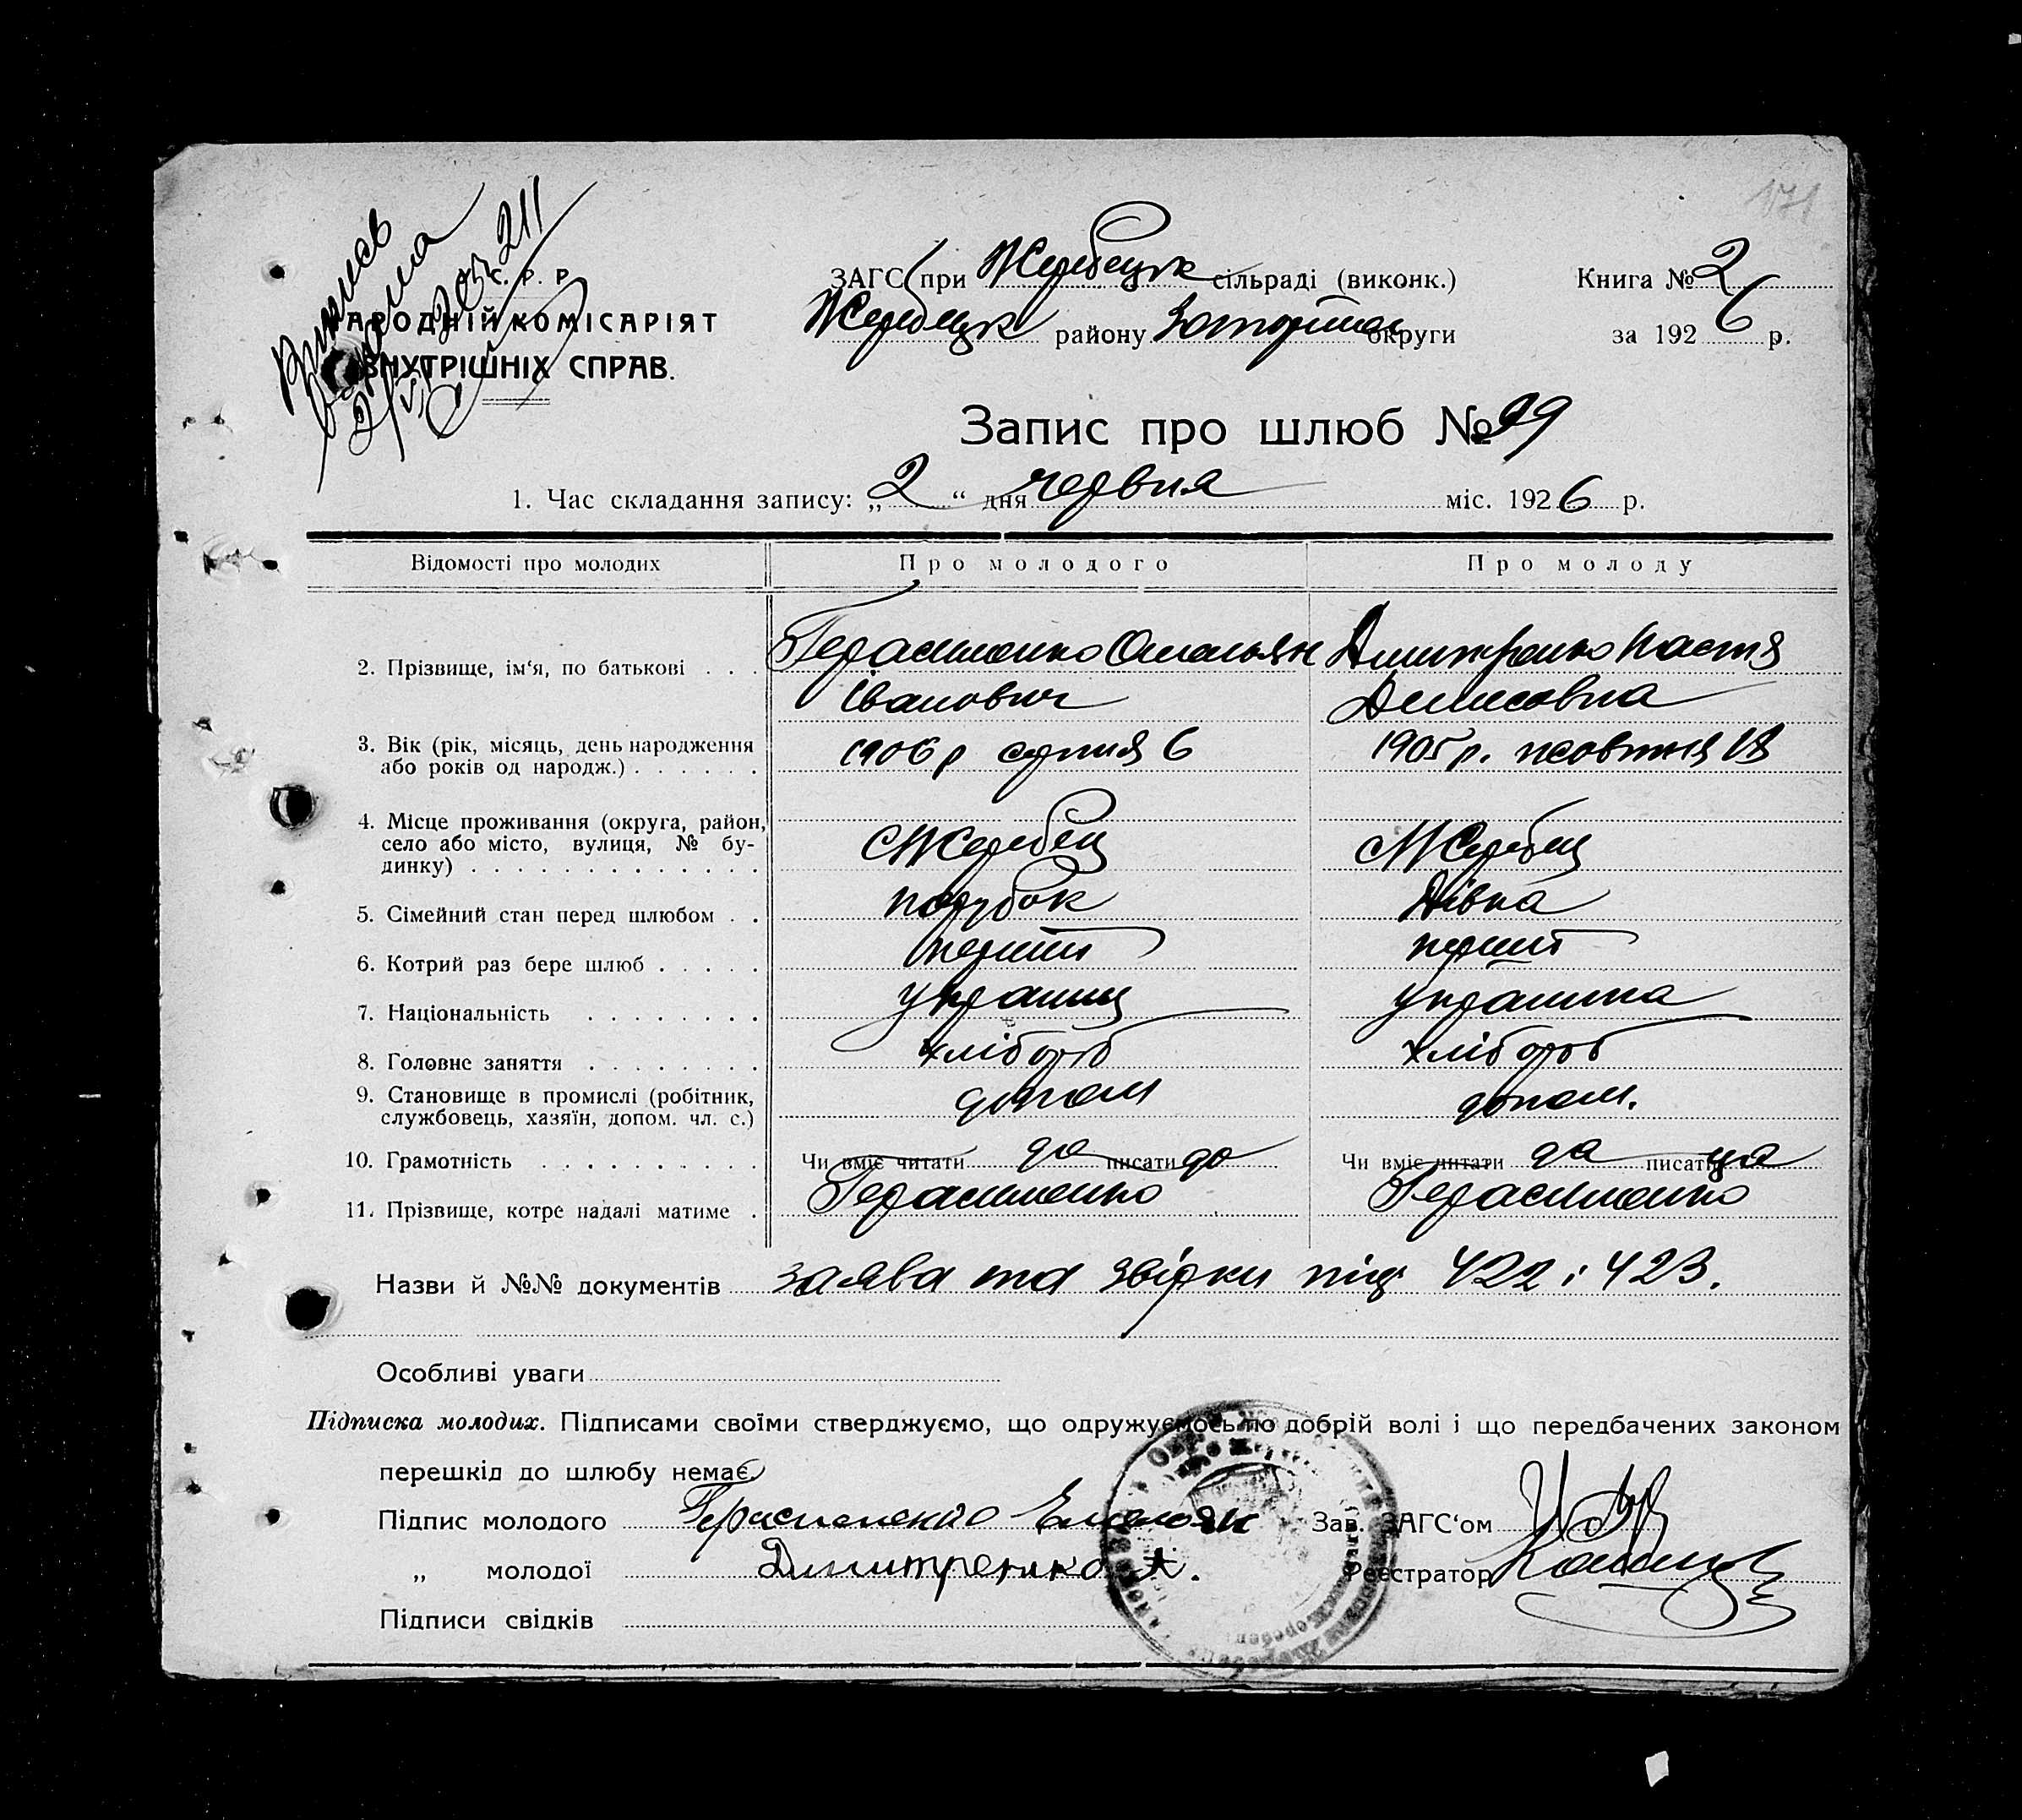 171
Виписъ
видана
С. Р. Р.
НАРОДНІЙ КОМІСАРІЯТ
ВНУТРІШНІХ СПРАВ.
ЗАГС при Жеребецьк сільраді (виконк.)
Жеребецьк району Запоріжськ округи
Книга № 2
за 1926 р.
Запис про шлюб № 99
1. Час складання запису: „ 2 “ дня червня міс. 1926 р.
Відомості про молодих Про молодого Про молоду
2. Прізвище, ім'я, по батькові . . . Герасименко Омельян Дмитренко Настя
Іванович Денисовна
3. Вік (рік, місяць, день народження 1906 р серпня 6 1905 р. жовтня 18
або років од народж.) . . . . . .
4. Місце проживання (округа, район,
село або місто, вулиця, № бу- с Жеребец с Жеребец
динку) . . . . . . . . . . . . .
5. Сімейний стан перед шлюбом . . парубок дівка
6. Котрий раз бере шлюб . . . . . перший перший
7. Національність . . . . . . . . українец українка
8. Головне заняття . . . . . . . . хлібороб хлібороб
9. Становище в промислі (робітник, допом допом.
службовець, хазяїн, допом. чл. с.)
10. Грамотність . . . . . . . . . . Чи вміє читати да писати да Чи вміє читати да писати да
11. Прізвище, котре надалі матиме . Герасименко Герасименко
Назви й №№ документів заява та звірки під 422 і 423.
Особливі уваги
Підписка молодих. Підписами своїми стверджуємо, що одружуємось по добрій волі і що передбачених законом
перешкід до шлюбу немає.
Підпис молодого Герасименко Емельян Зав. ЗАГС'ом
„ молодої Дмитренко А. Реєстратор
Підписи свідків